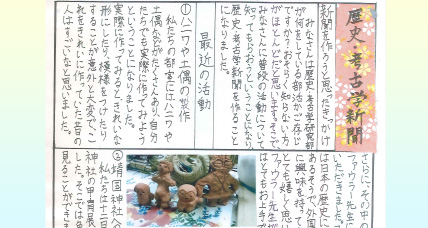 歴史・考古学新聞
新聞を作ろうと思ったきっかけ
みなさんは歴史・考古学研究部
が何をしている部活かご存じ
ですか?おそらく知らない方
がほとんどだと思います。そこで
みなさんに普段の活動について
知ってもらおうということになり
歴史・考古学新聞を作ること
になりました。
最近の活動
①ハニワや土偶の製作
私たちの部室にはハニワや
土偶などがたくさんあり、自分
たちでも実際に作ってみよう
ということになりました。
実際に作ってみるときれいな
形にしたり、模様をつけたり
することが意外と大変で、こ
れをきれいに作っていた昔の
人はすごいなと思いました。
さらに、その中の
ファウラー先生に
いただきました。フ
は日本の歴史に
あるそうで、外国
に興味を持って
とても嬉しい思い
ファウラー先生が
はとてもお上手で
②靖国神社へ
私たちは十二月
神社の甲冑展
した。そこでは
見ることができま